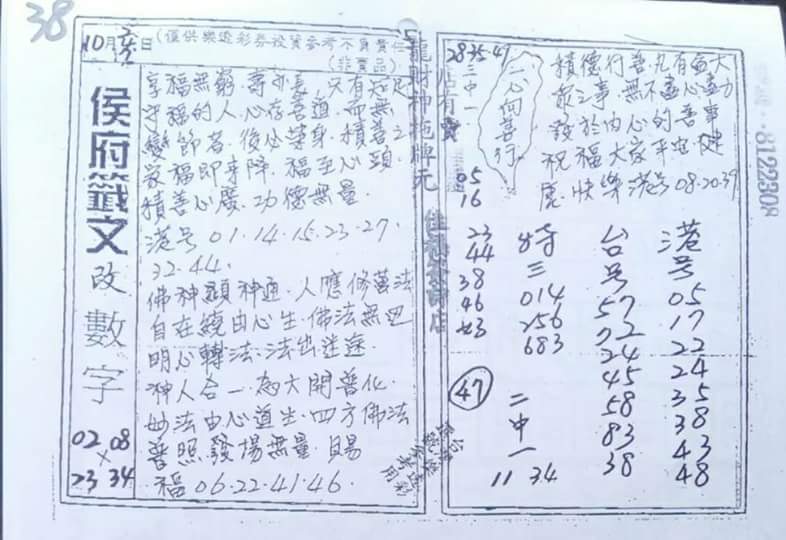 38
10月
日
(僅供樂透彩券投資參考不負責任
(非賣品)
侯府籤文
改數字
02 08
×
23 34
享福無窮.壽亦長.只有知足
守福的人.心存善道.而無
變節者.後必榮身.積善之
家福即來降.福至心頭.
積善心廣.功德無量.
港号01.14.15.23.27.
32.44.
佛神顯神通.人應修善法
自在緣由心生.佛法無邊
明心轉法.法出迷途.
神人合一.為大開普化.
妙法由心道生.四方佛法
普照發揚無量.賜
福06.22.41.46.
龍財神拖牌元
28-35-41
三中一
05
16
23
44
38
46
43
47
一心向善行
積德行善.凡有益大
眾之事.無不盡心盡力
發於內心的善事
祝福大家平安.健
康.快樂.港号08.20.39
特三
014
256
683
二中一
11 34
台号
57
72
24
45
58
83
38
港号
05
17
22
24
35
38
43
48
8122308